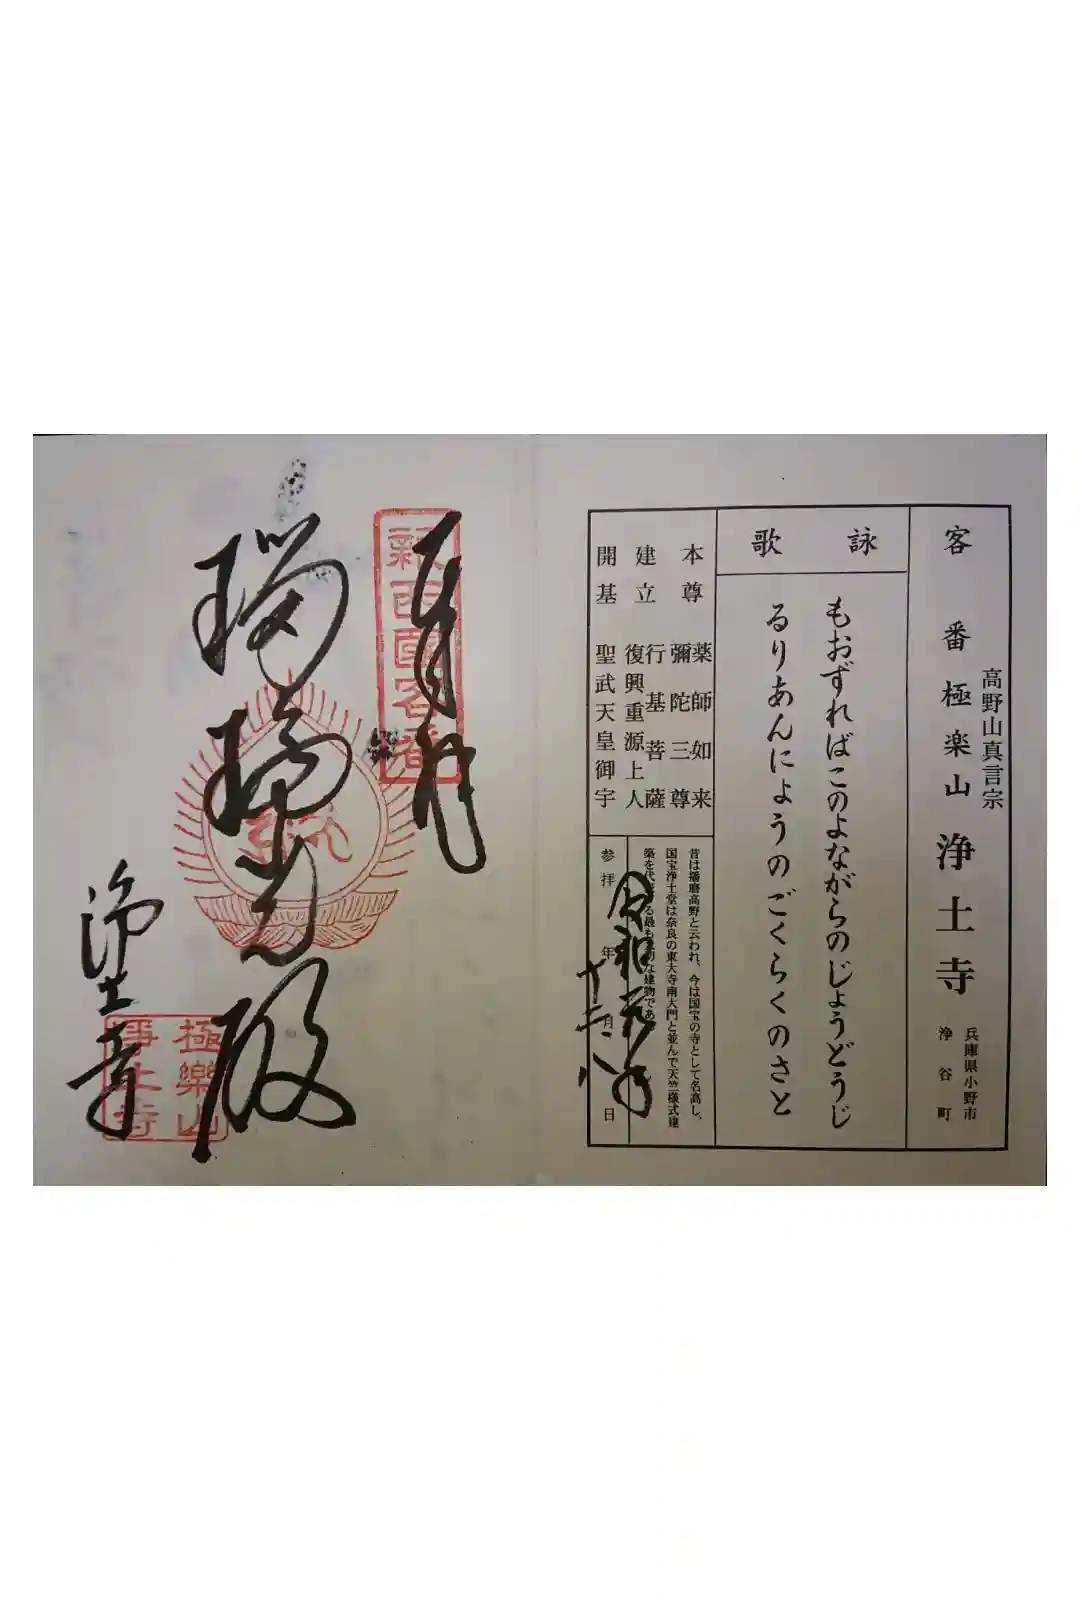 客番極楽山 浄土寺
高野山真言宗
兵庫県小野市
浄谷町
詠歌
もおずればこのよながらのじょうどうじ
るりあんにようのごくらくのさと
本尊 薬師如来
彌陀三尊
建立 行基菩薩
復興重源上人
開基 聖武天皇御宇
昔は播磨高野と云われ、今は国宝の寺として名高し、
国宝浄土堂は奈良の東大寺南大門と並んで天竺様式建
築を代 る最も な建物であ
参拝 年 月 日
令和元年
十二 八
奉拝
新西國客番
瑠璃光殿
浄土寺
極樂山
浄土寺